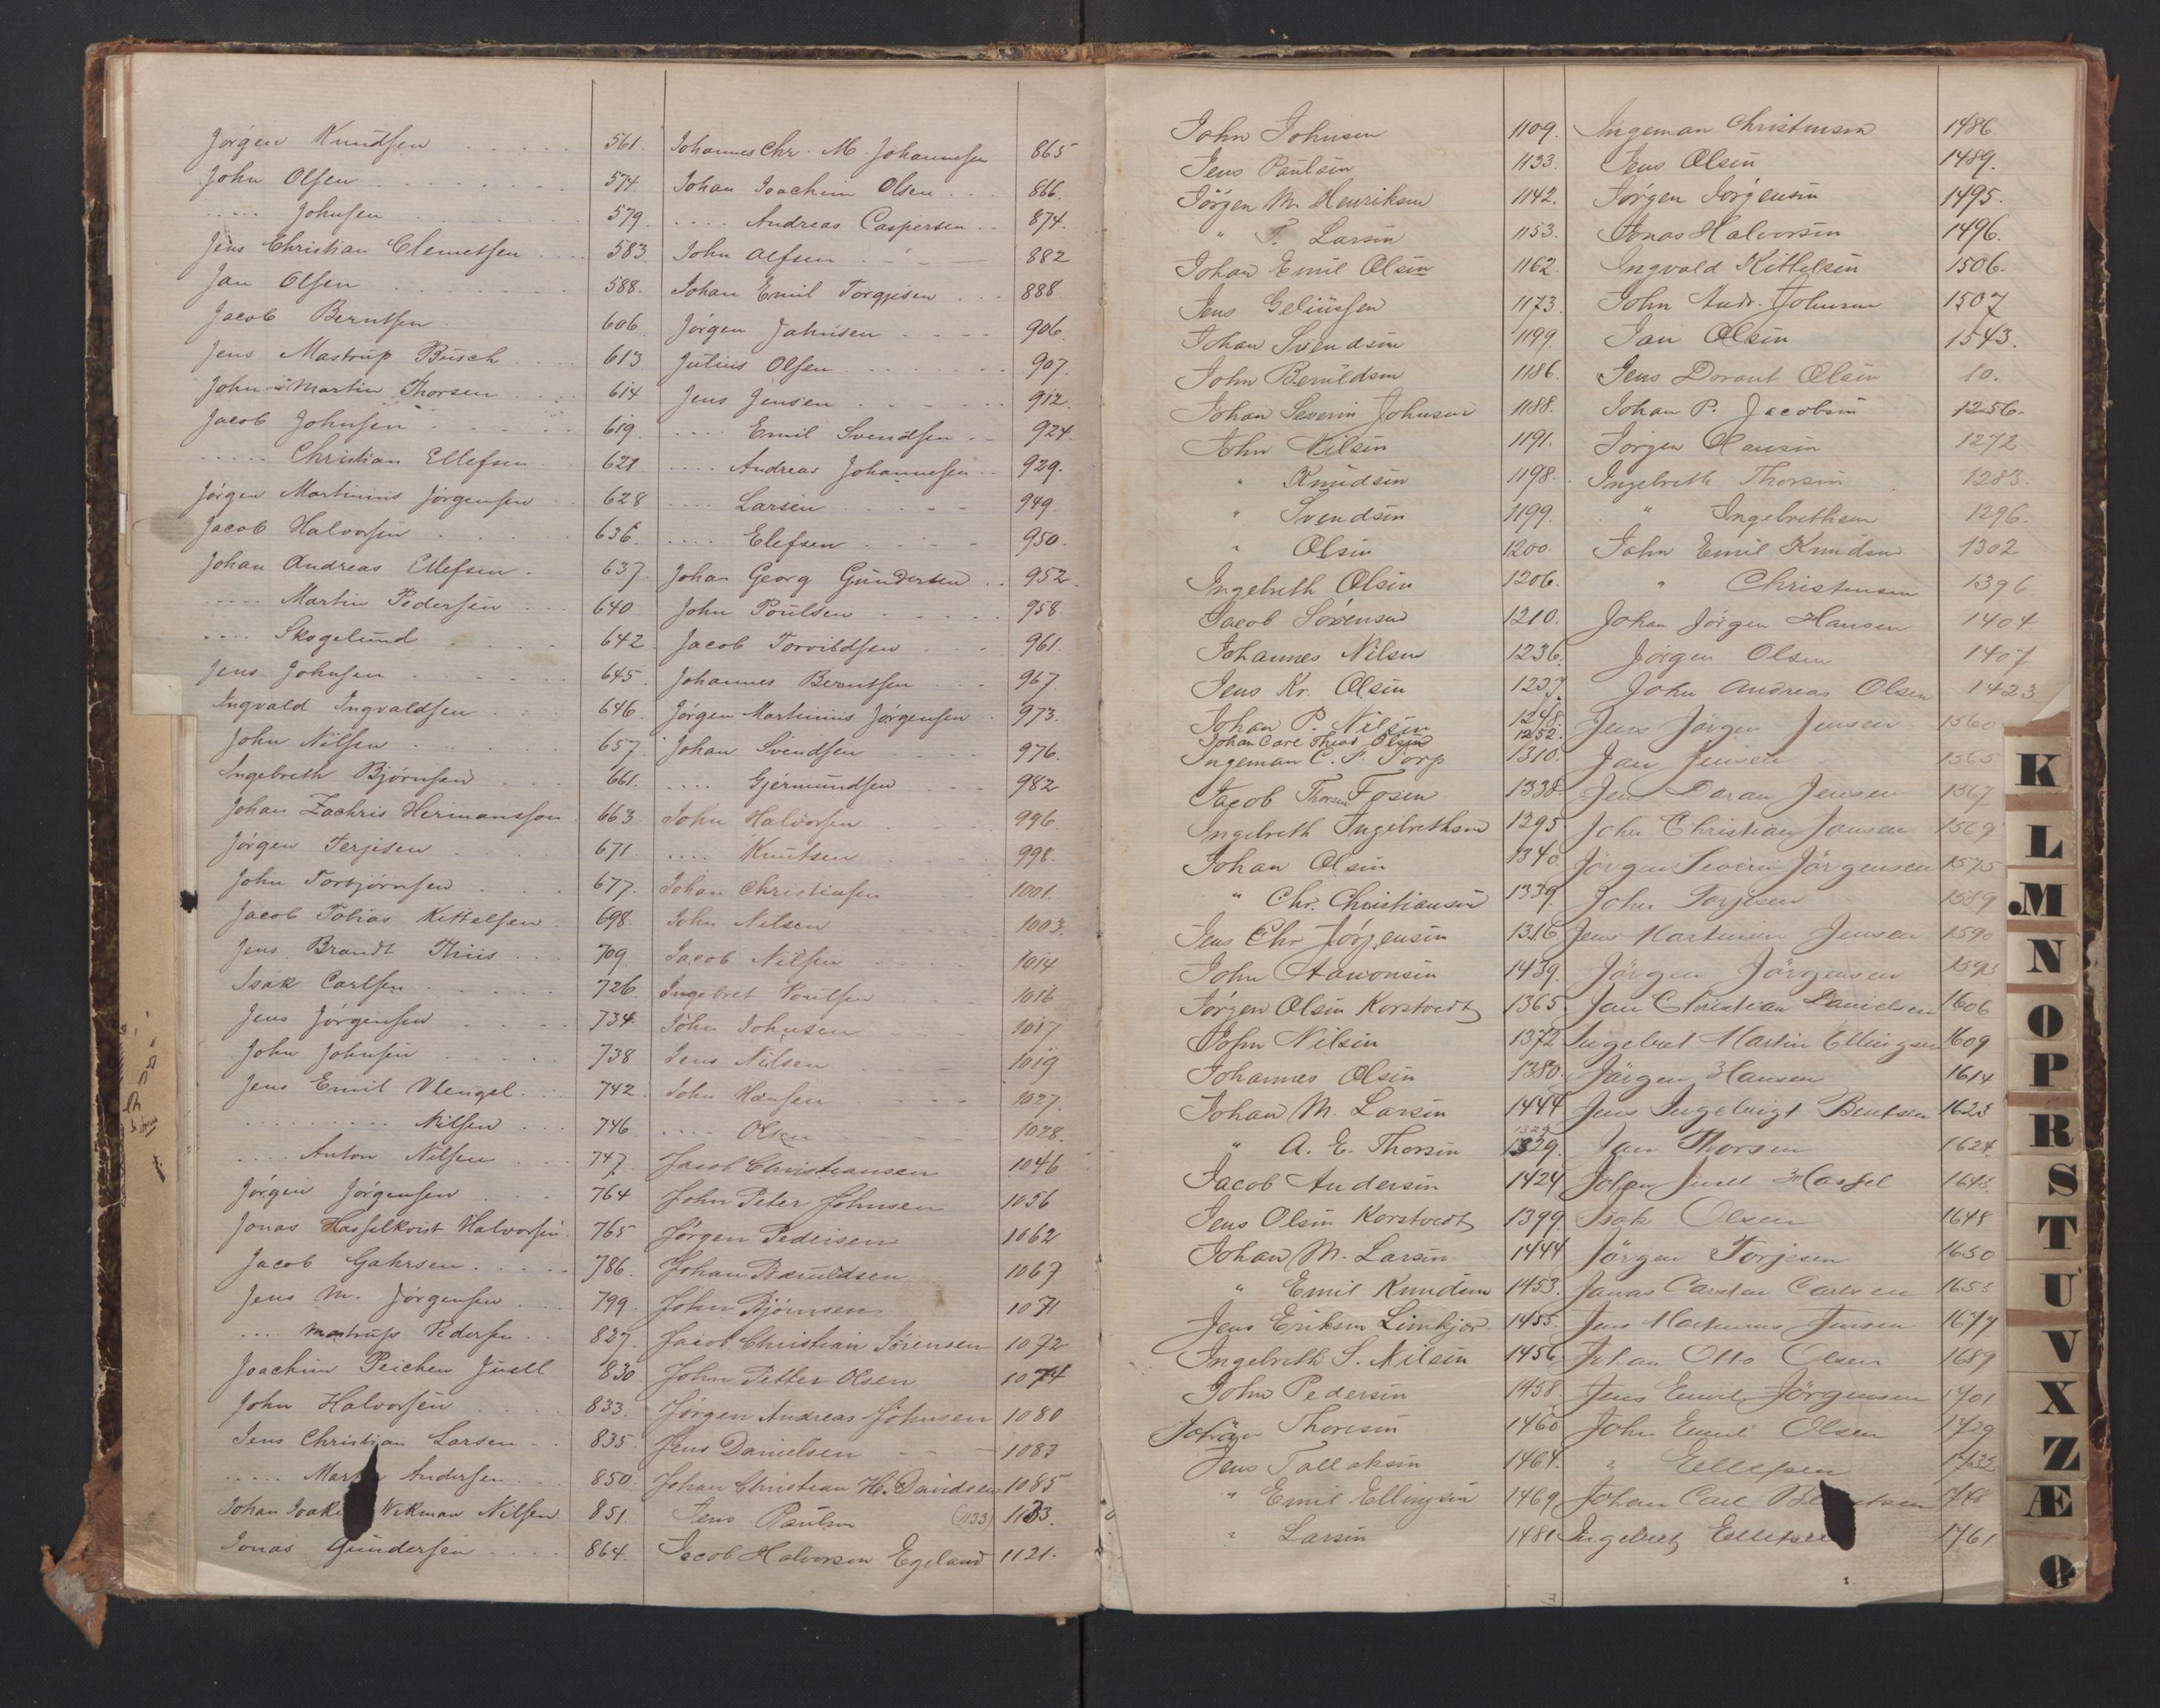 Jørgen Knudsen 561.
John Olsen 574.
..... Johnsen 579.
Jens Christian Clemetsen 583.
Jan Olsen 588.
Jacob Berntsen 606.
Jens Mastrup Busch 613
John Martin Thorsen 614
Jacob Johnsen 619.
..... Christian Ellefsen 621
Jørgen Martinius Jørgensen 628
Jacob Halvorsen 636.
Johan Andreas Ellefsen 637.
..... Martin Pedersen 640
.... Skogelund 642
Jens Johnsen 645.
Ingvald Ingvaldsen 646.
John Nilsen 657.
Ingebreth Bjørnsen 661.
Johan Zachris Hermansson 663.
Jørgen Terjesen 671.
John Torbjørnsen 677.
Jacob Tobias Kittelsen 698.
Jens Brandt Thiis 709.
Isak Carlsen 726.
Jens Jørgensen 734.
John Johnsen 738
Jens Emil Wengel 742.
......... Nilsen 746.
.... Anton Nilsen 747.
Jørgen Jørgensen 764
Jonas Hasselkvist Halvorsen 765
Jacob Gahrsen 786.
Jens M. Jørgensen 799.
.... Mastrup Pedersen 827.
Joachim Peichen Juell 830
John Halvorsen 833.
Jens Christian Larsen 835
..... Andersen 850
Johan Wikman Nilsen 851.
Jonas Gundersen 864.
Johannes Chr. M. Johannesen 865
Johan Joachim Olsen 866.
.... Andreas Caspersen 874.
John Alfsen 882
Johan Emil Torgjesen 888
Jørgen Jahnsen 906.
Julius Olsen 907.
Jens Jensen 912.
.... Emil Svendsen 924.
.... Andreas Johannesen 929.
.... Larsen 949.
.... Elefsen 950.
Johan Georg Gundersen 952.
John Poulsen 958.
Jacob Torvildsen 961.
Johannes Berntsen 967.
Jørgen Martinius Jørgensen 973.
Johan Svendsen 976.
.... Gjermundsen 982
John Halvorsen 996.
.... Knutsen 998.
Johan Christiansen 1001.
John Nilsen 1003.
Jacob Nilsen 1014
Ingebret Poulsen 1016
John Johnsen 1017
Jens Nilsen 1019
John Hansen 1027.
.... Olsen 1028.
Jacob Christiansen 1046
John Peter Johnsen 1056
Jørgen Pedersen 1062
Johan Baruldsen 1067
John Bjørnsen 1071
Jacob Christian Sörensen 1072
John Petter Olsen 1074
Jørgen Andreas Johnsen 1080
Jens Danielsen 1083
Johan Christian H. Davidsen 1085
Jens Paulsen (1133) 1133.
Jacob Halvorsen Egeland 1121.
John Johnsen 1109.
Jens Paulsen 1133.
Jörgen M. Henriksen 1142.
" T. Larsen 1153.
Johan Emil Olsen 1162.
Jens Geliussen 1173.
Johan Svendsen 1199.
John Beruldsen 1186.
Johan Severin Johnsen 1188.
John Nilsen 1191.
" Knudsen 1198.
" Svendsen 1199.
" Olsen 1200.
Ingebreth Olsen 1206.
Jacob Sörensen 1210.
Johannes Nilsen 1236.
Jens Kr. Olsen 1237.
Johan P. Nilsen 1248.
Johan Carl Theod Olsen 1252.
Ingeman C. F. Torp 1310.
Jacob Thorsen Fosen 1338
Ingebreth Ingebrethsen 1295
Johan Olsen 1340
" Chr. Christiansen 1339.
Jens Chr Jörgensen 1316
John Aanonsen 1439.
Jørgen Olsen Korstvedt 1365
John Nilsen 1372
Johannes Olsen 1380.
Johan M. Larsen 1444
1329
" A. E. Thorsen 1329.
Jacob Andersen 1424
Jens Olsen Korstvedt 1399
Johan M. Larsen 1444
" Emil Knudsen 1453.
Jens Eriksen Limkjør 1455.
Ingebreth S. Nilsen 1456.
John Pedersen 1458.
Johan Thorsen 1460
Jens Tallaksen 1464.
" Emil Ellingsen 1469
" Larsen 1481
Ingeman Christensen 1486.
Jens Olsen 1489.
Jørgen Jørgensen 1495.
Jonas Halvorsen 1496.
Ingvald Kittelsen 1506.
John Andr. Johnsen 1507
Jan Olsen 1543.
Jens Dorant Olsen 10.
Johan P. Jacobsen 1256.
Jørgen Hansen 1272
Ingebreth Thorsen 1283.
" Ingebrethsen 1296.
John Emil Knudsen 1302
" Christensen 1396
Johan Jörgen Hansen 1404
Jörgen Olsen 1407
John Andreas Olsen 1423
Jens Jörgen Jensen 1560
Jan Jensen 1565
Jens Daran Jensen 1567
John Christian Jansen 1569
Jörgen Severin Jörgensen 1575
John Torjesen 1589
Jens Martinius Jensen 1590
Jörgen Jörgensen 1593
Jan Christian Danielsen 1606
Ingebret Martin Ellingsen 1609
Jörgen Hansen 1614
Jens Ingebrigt Bentsen 1623
Jan Thorsen 1624.
Johan Juell Hassel 1643.
Isak Olsen 1648
Jörgen Torjesen 1650
Jonas Carsten Carlsen 1653
Jens Martinius Jensen 1677
Johan Otto Olsen 1689
Jens Emil Jörgensen 1701
John Emil Olsen 1729
" Ellefsen 1732
Johan Carl 1748
Ingebret Ellefsen 1761
K
L
M
N
O
P
R
S
T
U
V
X
Z
Æ
Ø